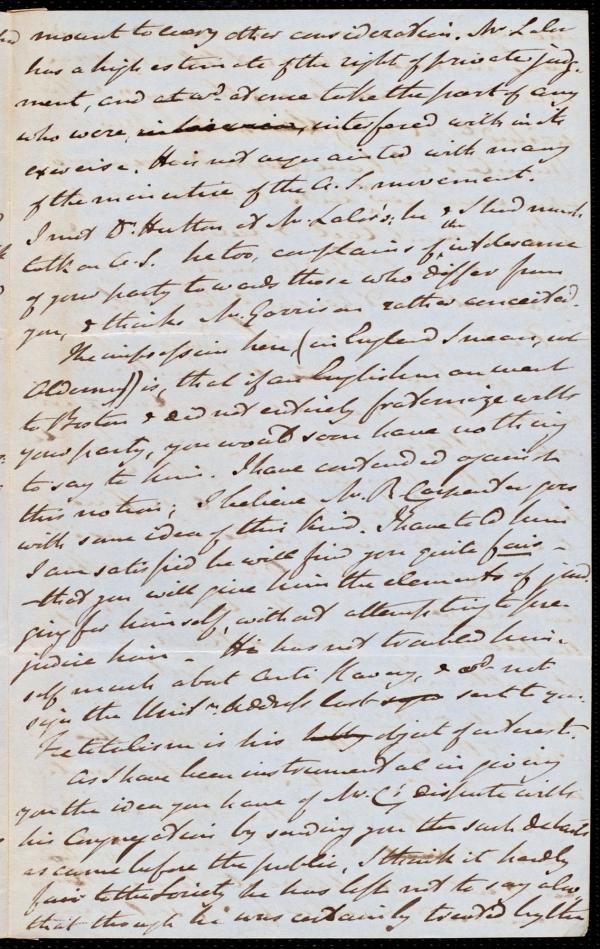 mount to every other consideration. Mr. Lalor
has a high estimate of the right of private judg-
ment, and wd. at once take the part of any
who were, interfered with in its
exercise. He is not acquainted with many
of the minutiae of the A. S. movement.
I met Dr. Hutton at Mr. Lalor's; he & I had much
talk on A. S. he too, complains of the
of your party towards those who differ from
you, & thinks Mr. Garrison rather conceited.
The impression here, (in England I mean, not
) is, that if an Englishman went
to Boston & did not entirely fraternize with
your party, you would soon have nothing
to say to him. I have contended against
this notion; I believe Mr. R. Carpenter goes
with some idea of this kind. I have told him
I am satisfied he will find you quite fair -
- that you will give him the elements of jud-
ging for himself, without attempting to pre-
judice him - He has not troubled him-
self much about Anti Slavery, & wd. not
sign the Unitn. Address last sent to you.
Teetotalism is his object of interest.
As I have been instrumental in giving
you the idea you have of Mr. C's dispute with
his Congregation by sending you the such details
as came before the public, I think it hardly
fair to the Society he has left not to say also,
that though he was certainly treated by the